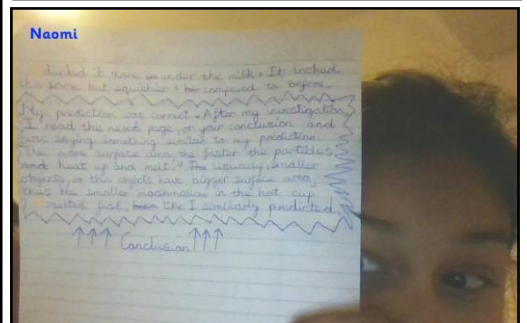 Naomi
ducked it more under the milk. It looked
the same but squishier & compared to before.
My prediction was correct. After my investigation,
I read the next page, or your conclusion and
was saying something similar to my prediction.
"The more surface area the faster the particles
heat up and melt." The usually, smaller
objects, or thin objects have bigger surface area,
thus the smaller mashmallow in the hot cup
melted first, like I similarly predicted.
↑↑↑ Conclusion ↑↑↑